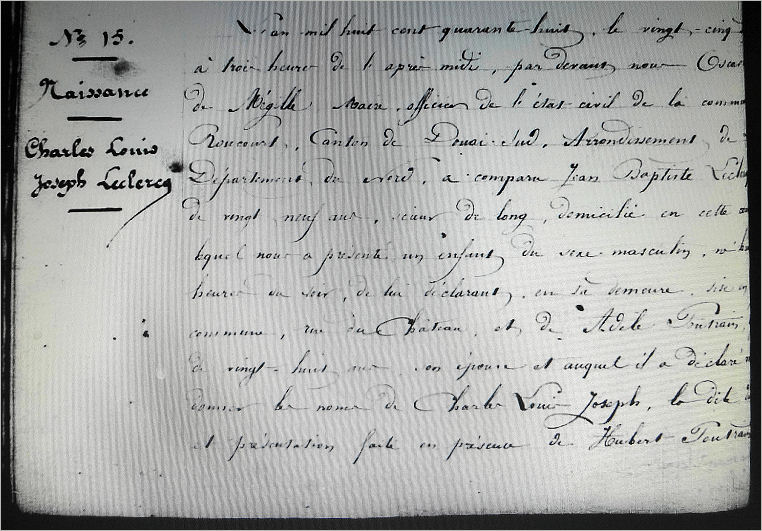 N.º 15.
Naissance
Charles Louis
Joseph Leclercq
L'an mil huit cent quarante-huit, le vingt-cinq
à trois heures de l'après midi, par devant nous Oscar
de Maire, officier de l'état-civil de la comm
Roucourt, Canton de Douai-Sud, Arrondissement de
Département du Nord, a comparu Jean Baptiste Lecl
de vingt neuf ans, scieur de long, domicilié en cette
lequel nous a présenté un enfant du sexe masculin, né
heures du soir, de lui déclarant, en sa demeure, sise
commune, rue du Château, et de Adèle
de vingt-huit ans son épouse et auquel il a déclaré
donner les noms de Charles Louis Joseph, la dite
et présentation faite en présence de Hubert